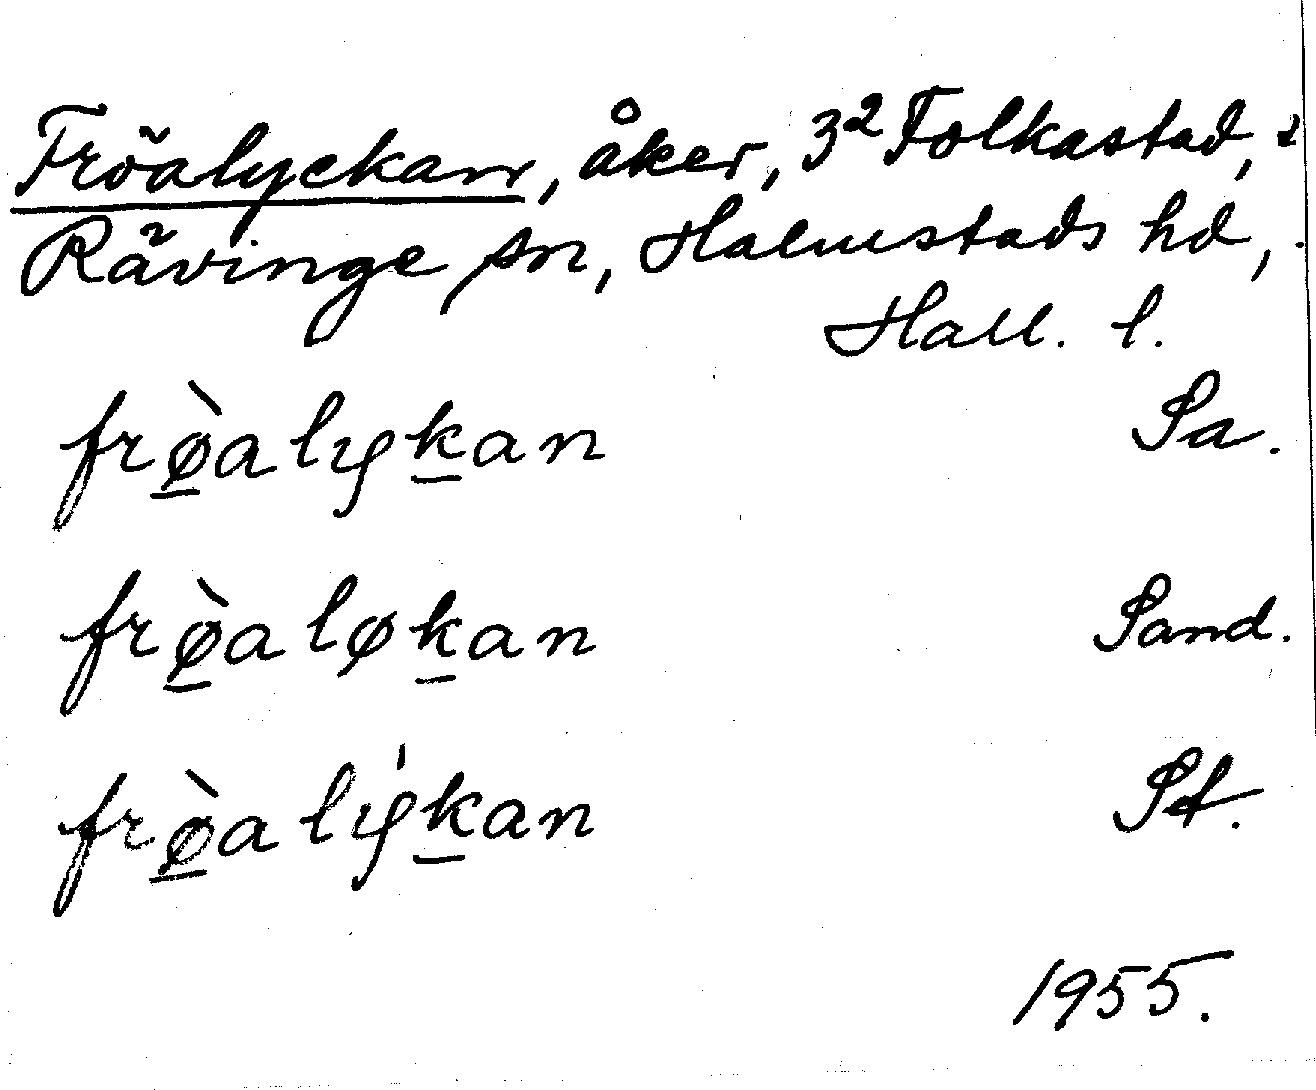 Fröalyckan, åker, 3² Folkastad,
Rävinge sn, Halmstads hd,
Hall. l.
frø̱̀alyḵan Sa.
frø̱̀aløḵan Sand.
frø̱̀alýḵan St.
1955.